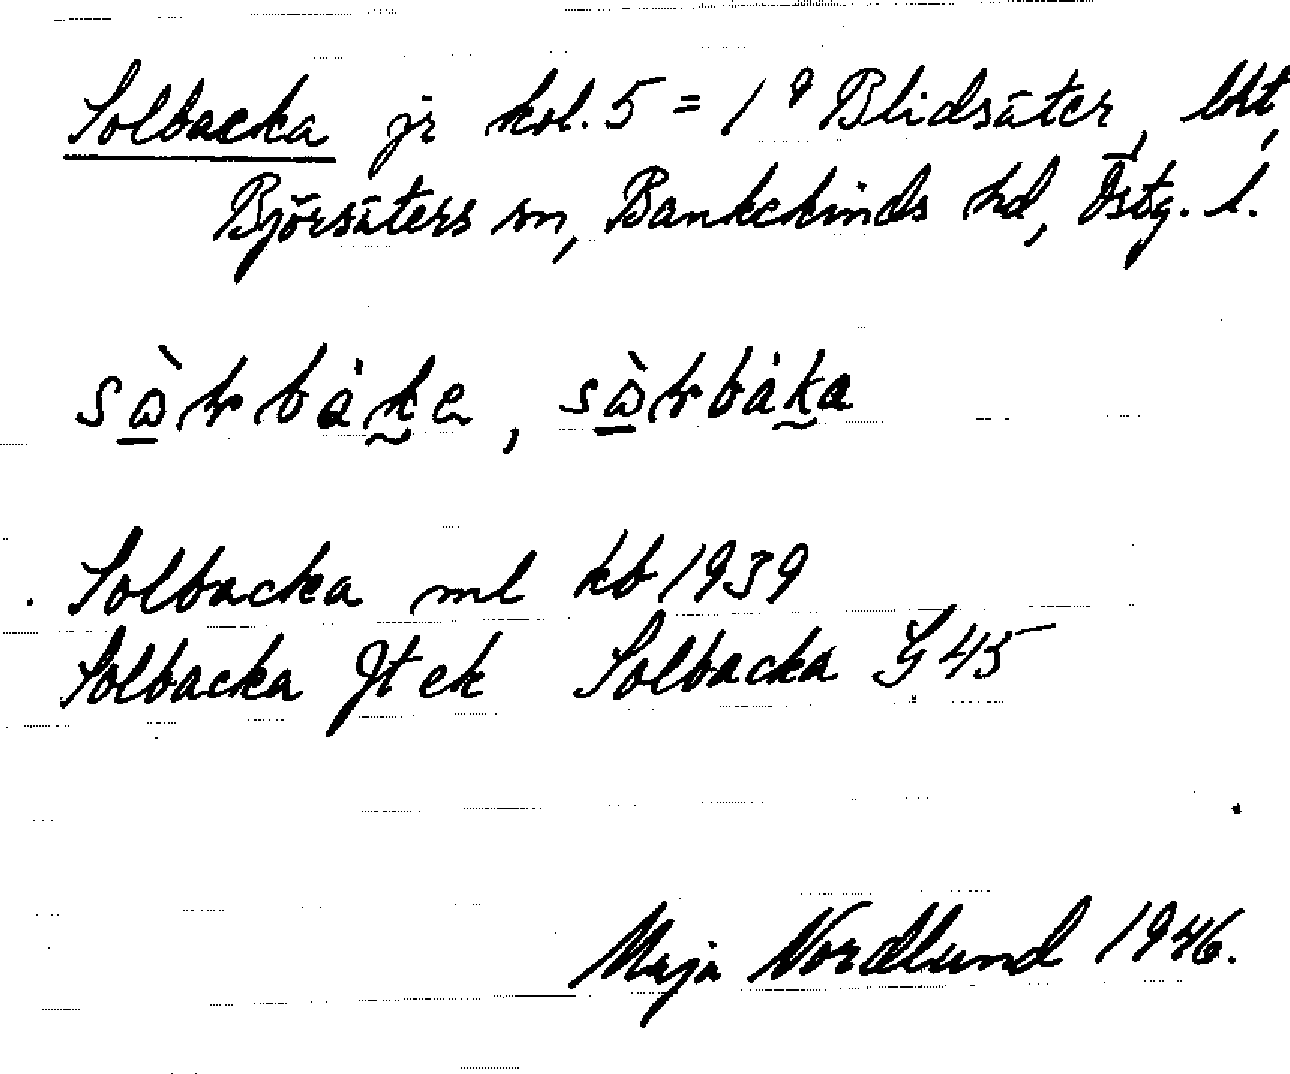 Solbacka jr kol. 5 = 1⁹ Blidsäter, lht,
Björsäters sn, Bankekinds hd, Östg. l.
Solbacka ml kb 1939
Solbacka Jt ek Solbacka G 45
Maja Nordlund 1946.